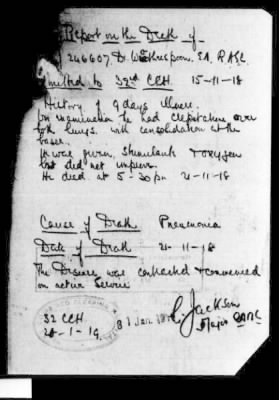 Report on the Death of
246607 Dr. Witherspoon. S.A. RASC.
Admitted to 32nd CCH. 15-11-18
History of 9 days illness.
On examination he had crepitations over
both lungs. with consolidation at the
bases.
He was given Stimulants + oxygen
but did not improve.
He died at 5-30 pm 21-11-18
Cause of Death Pneumonia
Date of Death 21-11-18
The Disease was contracted + commenced
on active Service
C. Jackson
Major RAMC
32 CCH.
20-1-19.
31 Jan 191